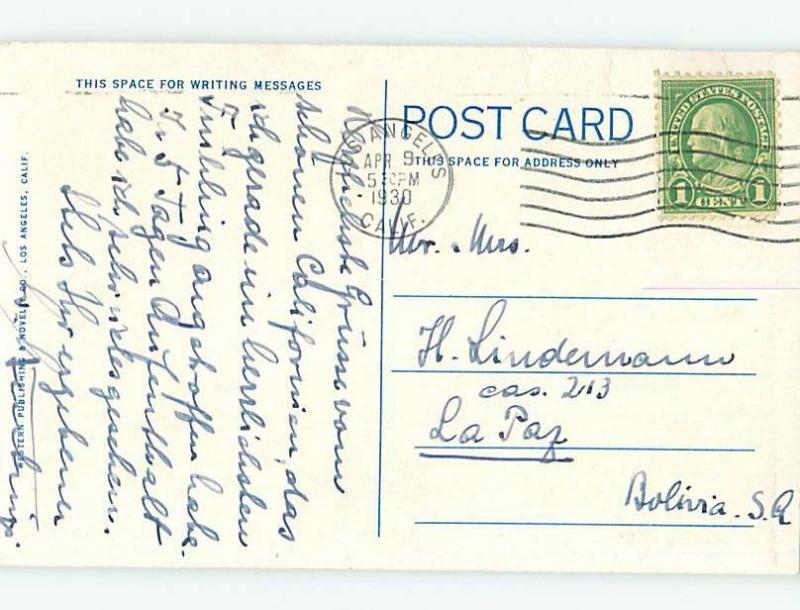 THIS SPACE FOR WRITING MESSAGES
Herzlichste Grüsse vom
schönen Californien, das
ich gerade im herrlichsten
Frühling angetroffen habe.
In 5 Tagen Aufenthalt
habe ich sehr viel gesehen.
Stets Ihr ergebener
WESTERN PUBLISHING & NOVELTY CO., LOS ANGELES, CALIF.
POST CARD
THIS SPACE FOR ADDRESS ONLY
LOS ANGELES
APR 9
5 PM
1930
CALIF.
UNITED STATES POSTAGE
1 CENT 1
Mr. & Mrs.
H. Lindemann
cas. 213
La Paz
Bolivia. S.A